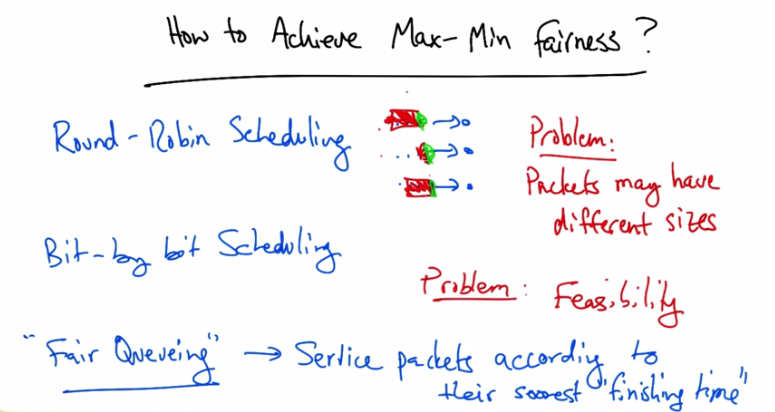 How to Achieve Max-Min Fairness?
Round-Robin Scheduling
Problem:
Packets may have
different sizes
Bit-by bit Scheduling
Problem: Feasibility
"Fair Queueing" → Service packets according to
their soonest "finishing time"